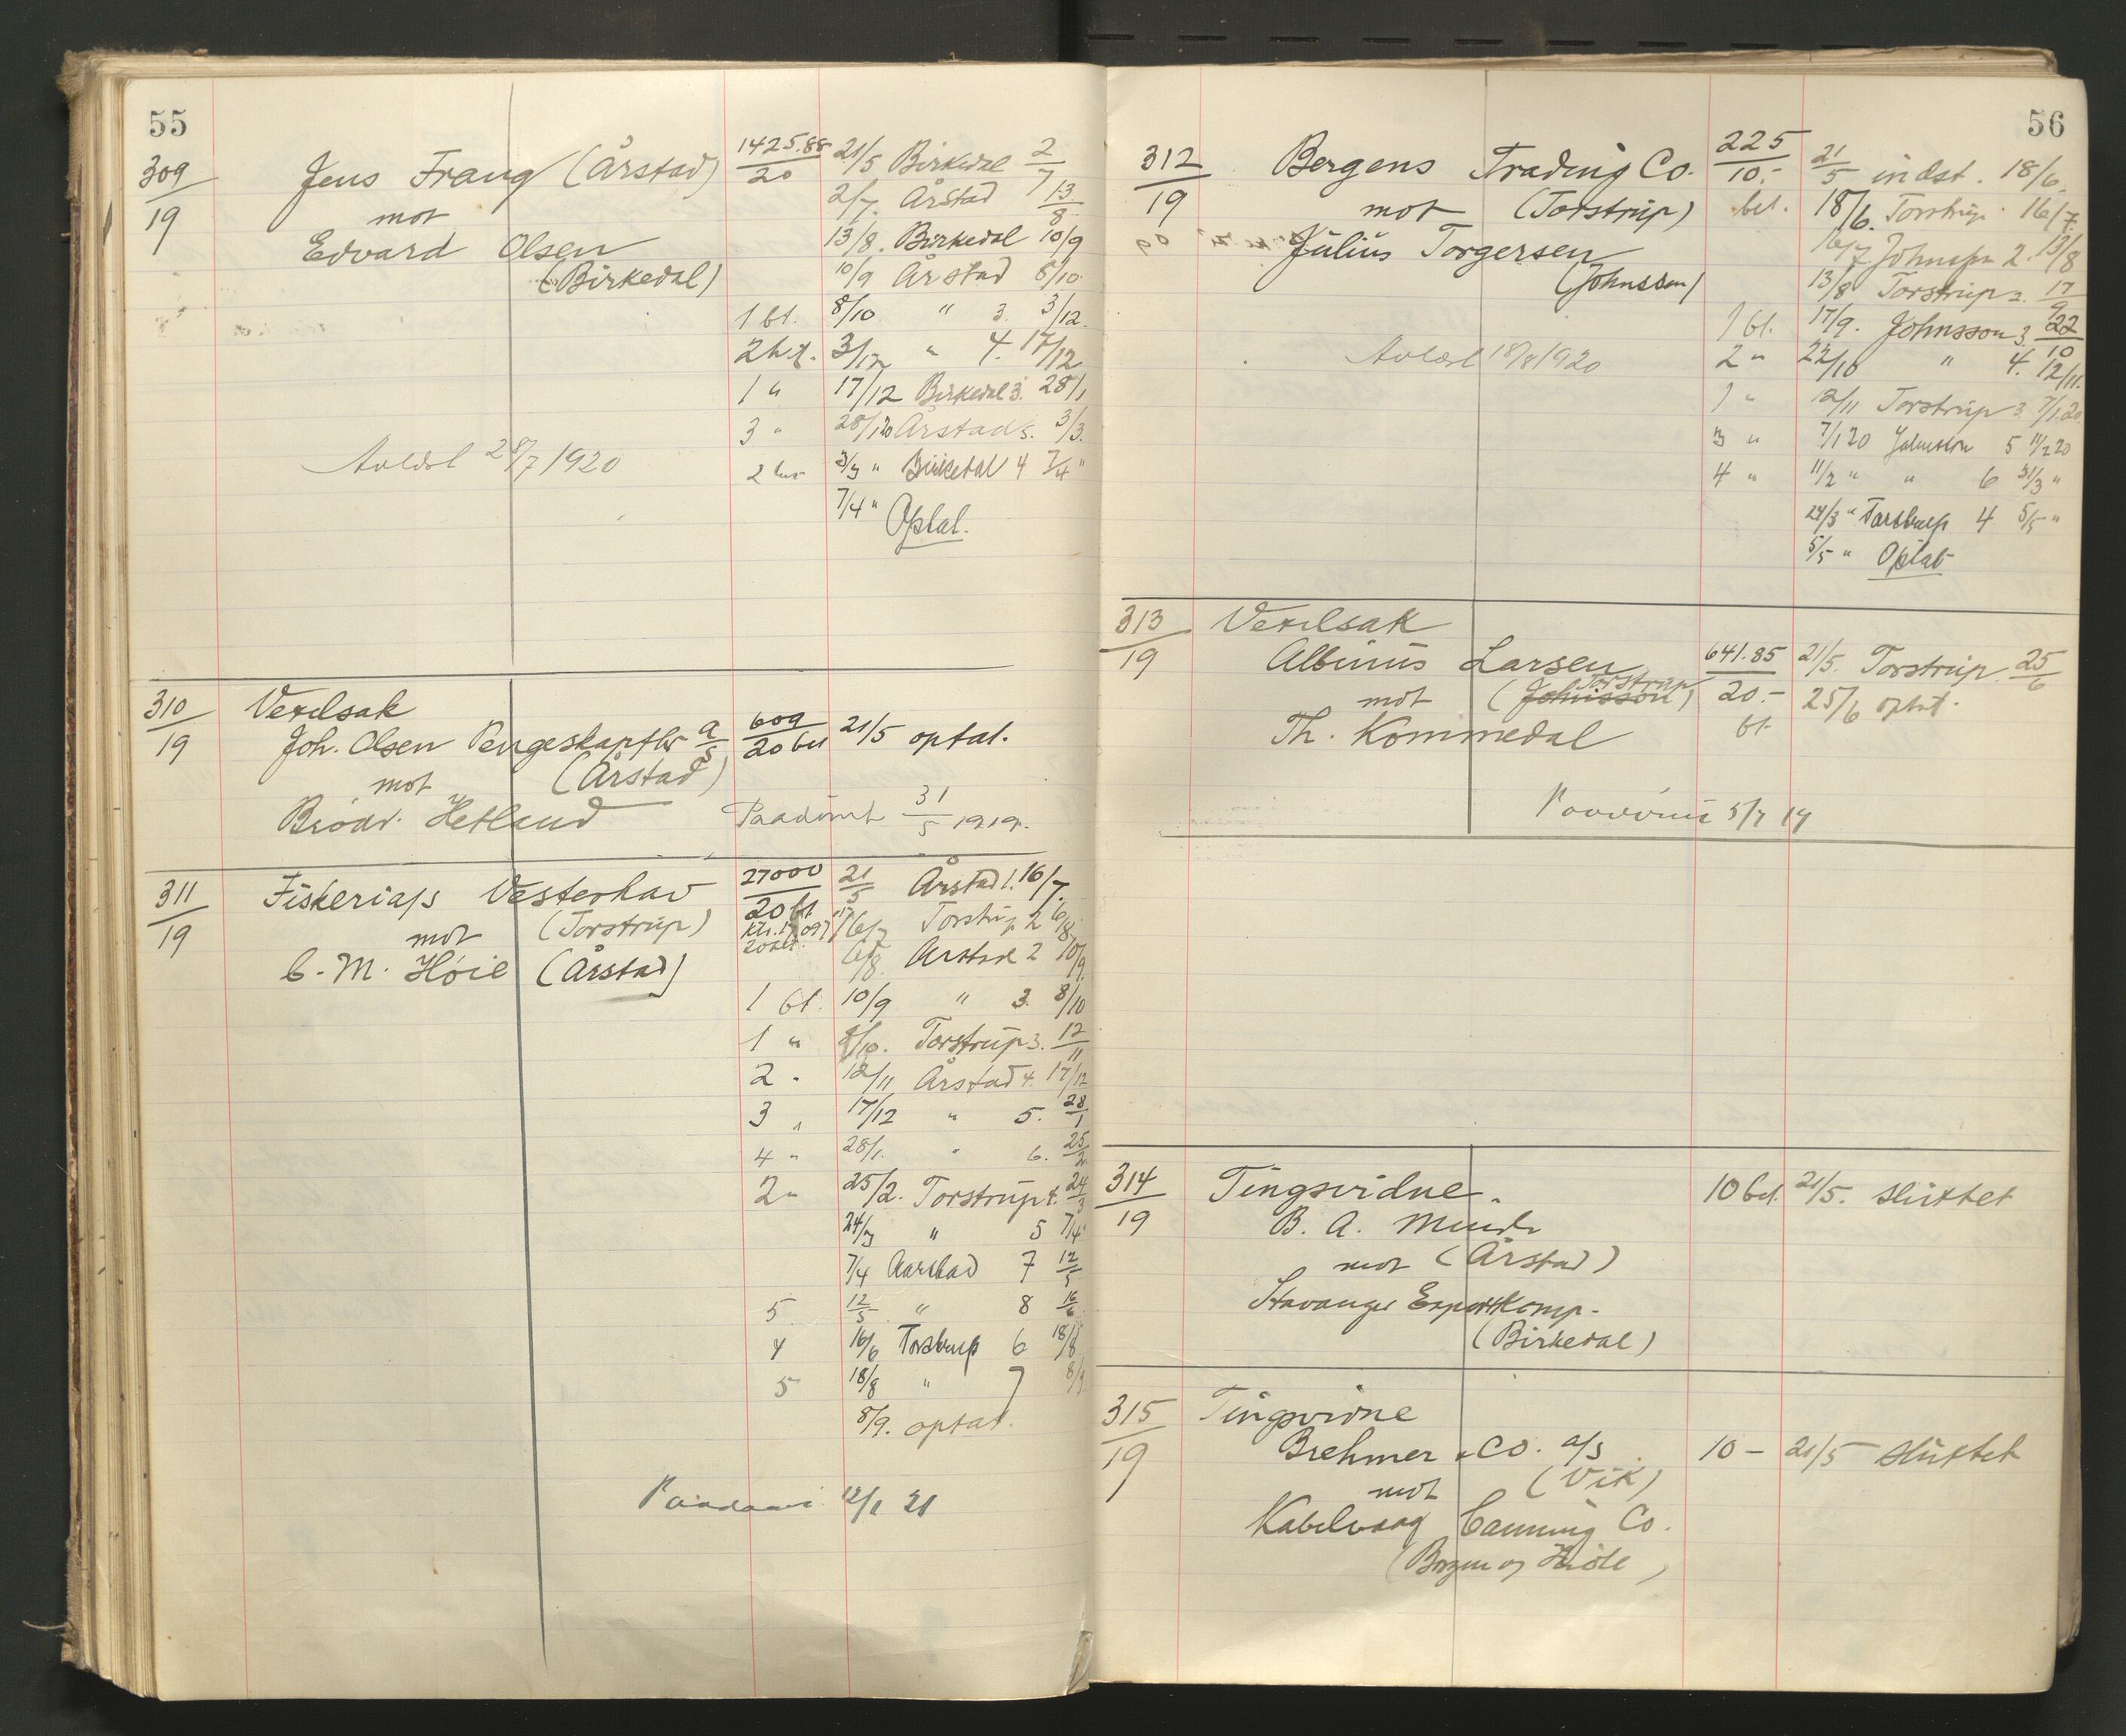 55
309/19 Jens Frang (Årstad) 1425.88/20 21/5 Birkedal 2/7
mot 2/7. Årstad 13/8
Edvard Olsen 13/8. Birkedal 10/9
(Birkedal) 10/9 Årstad 8/10
1 bl. 8/10 " 3. 3/12.
2 " 3/12 " 4. 17/12
1 " 17/12 Birkedal 3. 28/1
3 " 28/1 20 Årstad 5. 3/3.
Avløst 28/7 1920 2 3/3 " Birkedal 4 7/4 "
7/4 " Optat.
310/19 Vexelsak
Joh. Olsen Pengeskapfbr a/s 609/20 bet 21/5 optat.
mot (Årstad)
Brødr. Hetland Paadømt 31/5 1919.
311/19 Fiskeria/s Vesterhav 27000/20 bt. 21/5 Årstad 1. 16/7.
mot (Torstrup) 16/7 Torstrup 2 6/8
C. M. Høie (Årstad) 6/8. Årstad 2 10/9.
1 bt. 10/9 " 3. 8/10
1 " 8/10. Torstrup 3. 12/11
2 " 12/11 Årstad 4. 17/12
3 " 17/12 " 5. 28/1
4 " 28/1. " 6. 25/2
2 " 25/2. Torstrup 4. 24/3
24/3 " 5 7/4
7/4 Aarstad 7 12/5
5 12/5 " 8 16/6
4 16/6 Torstrup 6 18/8
5 18/8 " 7 8/9
8/9. optat.
12/1 21
56
312/19 Bergens Trading Co. 225/10.- 21/5 indst. 18/6.
mot (Torstrup) bet. 18/6. Torstrup 16/7.
Julius Torgersen 16/7 Johnsson 2. 13/8
(Johnsson) 13/8 Torstrup 2. 17/9
1 bt. 17/9. Johnsson 3. 22/10
Avløst 18/8 1920 2 " 22/10 " 4. 12/11.
1 " 12/11 Torstrup 3. 7/1 20
3 " 7/1 20 Johnsson 5 11/2 20
4 " 11/2 " " 6 "
24/3 " Torstrup 4 5/5 "
5/5 " Optat
313/19 Vexelsak
Albinus Larsen 641.85 21/5. Torstrup. 25/6
mot (Johnsson Torstrup) 20.- 25/6 optat.
Th. Kommedal bt.
5/7 19
314/19 Tingsvidne. 10 bet. 21/5. sluttet
B. A.
mot (Årstad)
Stavanger Export Komp.
(Birkedal)
315/19 Tingsvidne
Brehmer & Co. a/s 10 - 21/5 sluttet
mot (Vik)
Kabelvaag Canning Co.